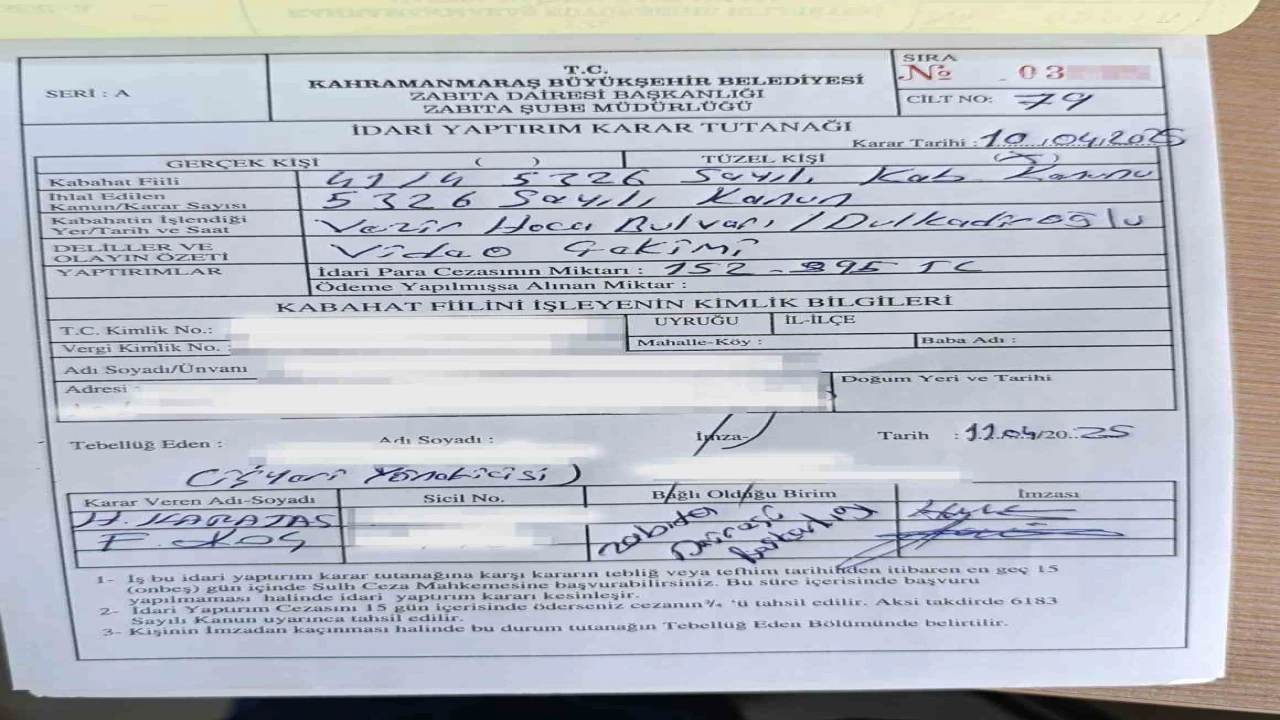 SERİ : A
T.C.
KAHRAMANMARAŞ BÜYÜKŞEHİR BELEDİYESİ
ZABITA DAİRESİ BAŞKANLIĞI
ZABITA ŞUBE MÜDÜRLÜĞÜ
SIRA
№ 03
CİLT NO: 79
İDARİ YAPTIRIM KARAR TUTANAĞI
Karar Tarihi : 10.04.2025
GERÇEK KİŞİ ( ) TÜZEL KİŞİ (X)
Kabahat Fiili 41/4 5326 Sayılı Kab Kanunu
İhlal Edilen
Kanun/Karar Sayısı 5326 Sayılı Kanun
Kabahatin İşlendiği
Yer/Tarih ve Saat Vezir Hoca Bulvarı / Dulkadiroğlu
DELİLLER VE
OLAYIN ÖZETİ Video Çekimi
YAPTIRIMLAR İdari Para Cezasının Miktarı : 152.895 TL
Ödeme Yapılmışsa Alınan Miktar :
KABAHAT FİİLİNİ İŞLEYENİN KİMLİK BİLGİLERİ
T.C. Kimlik No.: UYRUĞU İL-İLÇE
Vergi Kimlik No. : Mahalle-Köy : Baba Adı :
Adı Soyadı/Ünvanı
Adresi Doğum Yeri ve Tarihi
Tebellüğ Eden : Adı Soyadı : İmza- Tarih : 11.04/20.25
Yöneticisi)
Karar Veren Adı-Soyadı Sicil No. Bağlı Olduğu Birim İmzası
H. KARATAŞ
F. KOÇ
zabıta
Dairesi
Başkanlığı
1- İş bu idari yaptırım karar tutanağına karşı kararın tebliğ veya tefhim tarihinden itibaren en geç 15
(onbeş) gün içinde Sulh Ceza Mahkemesine başvurabilirsiniz. Bu süre içerisinde başvuru
yapılmaması halinde idari yaptırım kararı kesinleşir.
2- İdari Yaptırım Cezasını 15 gün içerisinde öderseniz cezanın ¾ 'ü tahsil edilir. Aksi takdirde 6183
Sayılı Kanun uyarınca tahsil edilir.
3- Kişinin İmzadan kaçınması halinde bu durum tutanağın Tebellüğ Eden Bölümünde belirtilir.